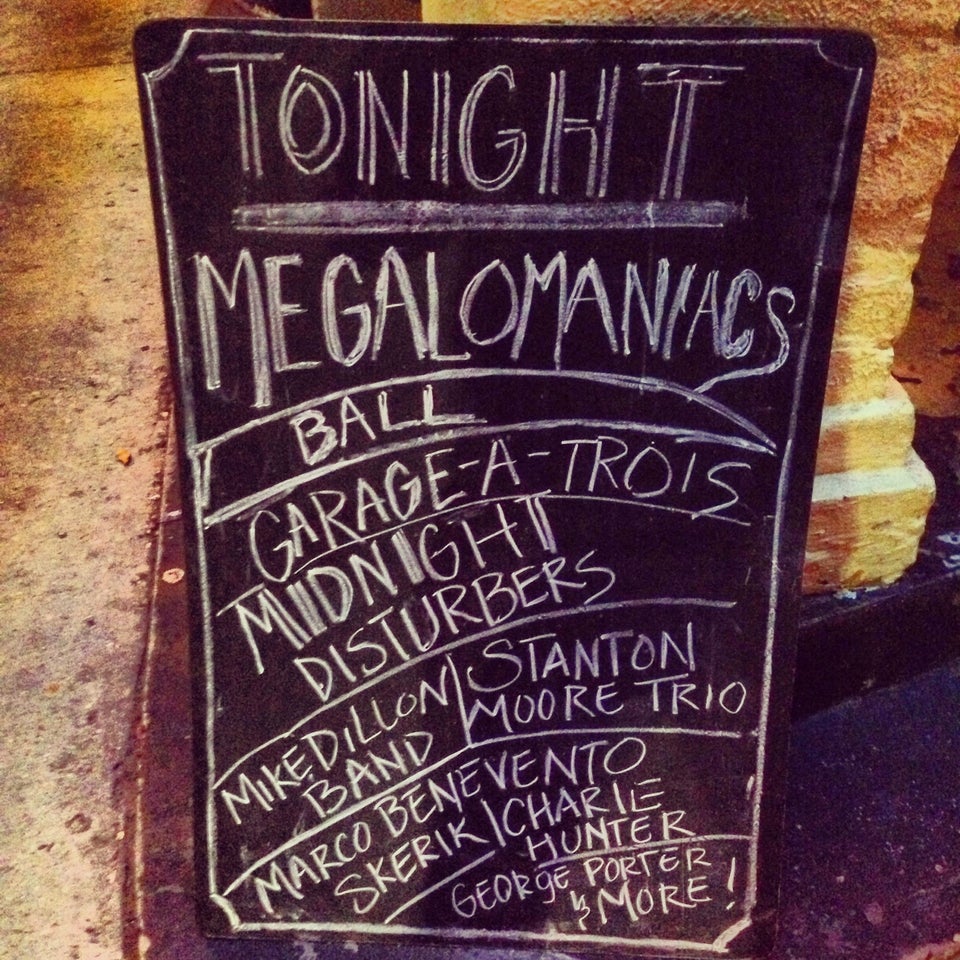 TONIGHT
MEGALOMANIACS
BALL
GARAGE-A-TROIS
MIDNIGHT
DISTURBERS
MIKE DILLON
BAND
STANTON
MOORE TRIO
MARCO BENEVENTO
SKERIK
CHARILE
HUNTER
GEORGE PORTER
& MORE!